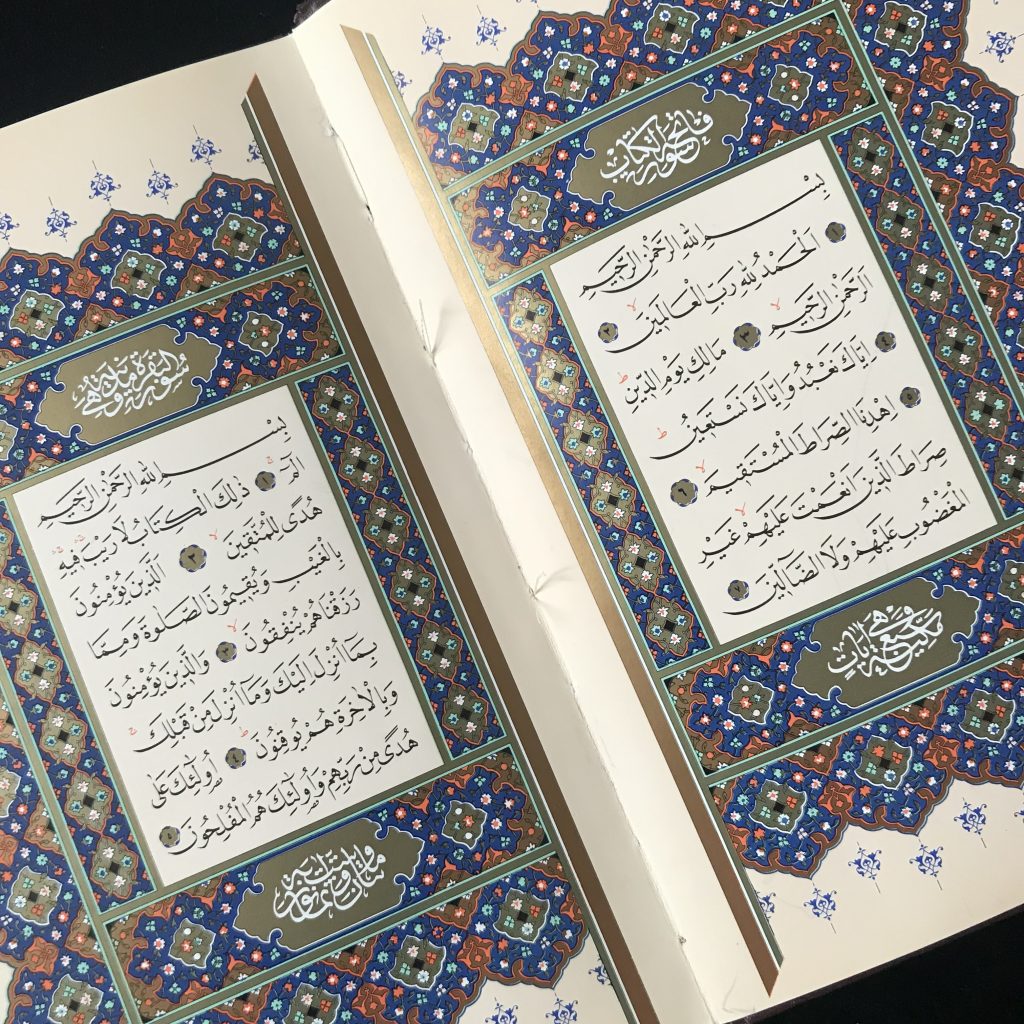 سورة فاتحة الكتاب
بِسْمِ اللهِ الرَّحْمٰنِ الرَّحِيمِ
١ اَلْحَمْدُ لِلّٰهِ رَبِّ الْعَالَمِينَ ٢
اَلرَّحْمٰنِ الرَّحِيمِ ٣ مَالِكِ يَوْمِ الدِّينِ
٤ اِيَّاكَ نَعْبُدُ وَاِيَّاكَ نَسْتَعِينُ
٥ اِهْدِنَا الصِّرَاطَ الْمُسْتَقِيمَ ٦
صِرَاطَ الَّذِينَ اَنْعَمْتَ عَلَيْهِمْ غَيْرِ
الْمَغْضُوبِ عَلَيْهِمْ وَلَا الضَّالِّينَ ٧
وهي سبع آيات مكية
سورة البقرة مدنية وهي
بِسْمِ اللهِ الرَّحْمٰنِ الرَّحِيمِ
الٓمٓ ١ ذٰلِكَ الْكِتَابُ لَا رَيْبَ فِيهِ
هُدًى لِلْمُتَّقِينَ ٢ اَلَّذِينَ يُؤْمِنُونَ
بِالْغَيْبِ وَيُقِيمُونَ الصَّلٰوةَ وَمِمَّا
رَزَقْنَاهُمْ يُنْفِقُونَ ٣ وَالَّذِينَ يُؤْمِنُونَ
بِمَٓا اُنْزِلَ اِلَيْكَ وَمَٓا اُنْزِلَ مِنْ قَبْلِكَ
وَبِالْاٰخِرَةِ هُمْ يُوقِنُونَ ٤ اُو۬لٰٓئِكَ عَلٰى
هُدًى مِنْ رَبِّهِمْ وَاُو۬لٰٓئِكَ هُمُ الْمُفْلِحُونَ ٥
مائتان وست وثمانون آية